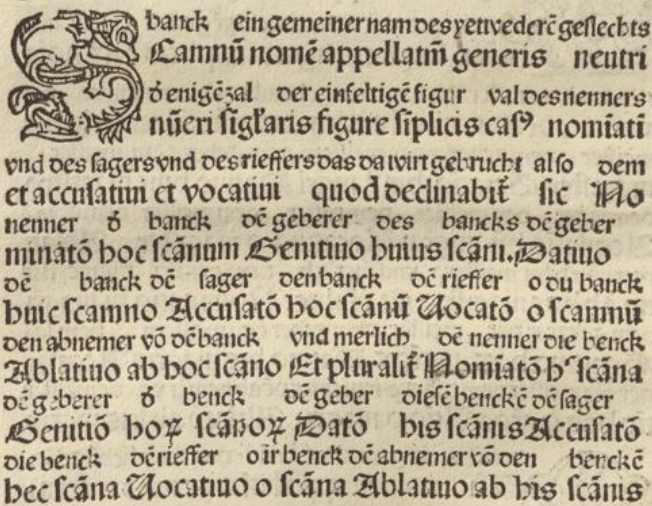 banck ein gemeiner nam des yetwederē geslechts
Scamnū nomē appellatiū generis neutri
d̓ enigēzal der einfeltigē figur val des nenners
nūeri siglaris figure sīplicis casꝰ nomīati
vnd des sagers vnd des rieffers das da wirt gebrucht also dem
et accusatiui et vocatiui quod declinabit̄ sic No
nenner d̓ banck dē geberer des bancks dē geber
minatō hoc scānum Genitiuo huius scāni. Datiuo
dē banck dē sager den banck dē rieffer o du banck
huic scamno Accusatō hoc scānū Uocatō o scamnū
den abnemer vō dē banck vnd merlich dē nenner die benck
Ablatiuo ab hoc scāno Et pluralit̄ Nomīatō hͨ scāna
dē geberer d̓ benck dē geber diesē benckē dē sager
Genitiō hoꝝ scānoꝝ Datō his scānis Accusatō
die benck dē rieffer o ir benck dē abnemer vō den benckē
hec scāna Uocatiuo o scāna Ablatiuo ab his scānis